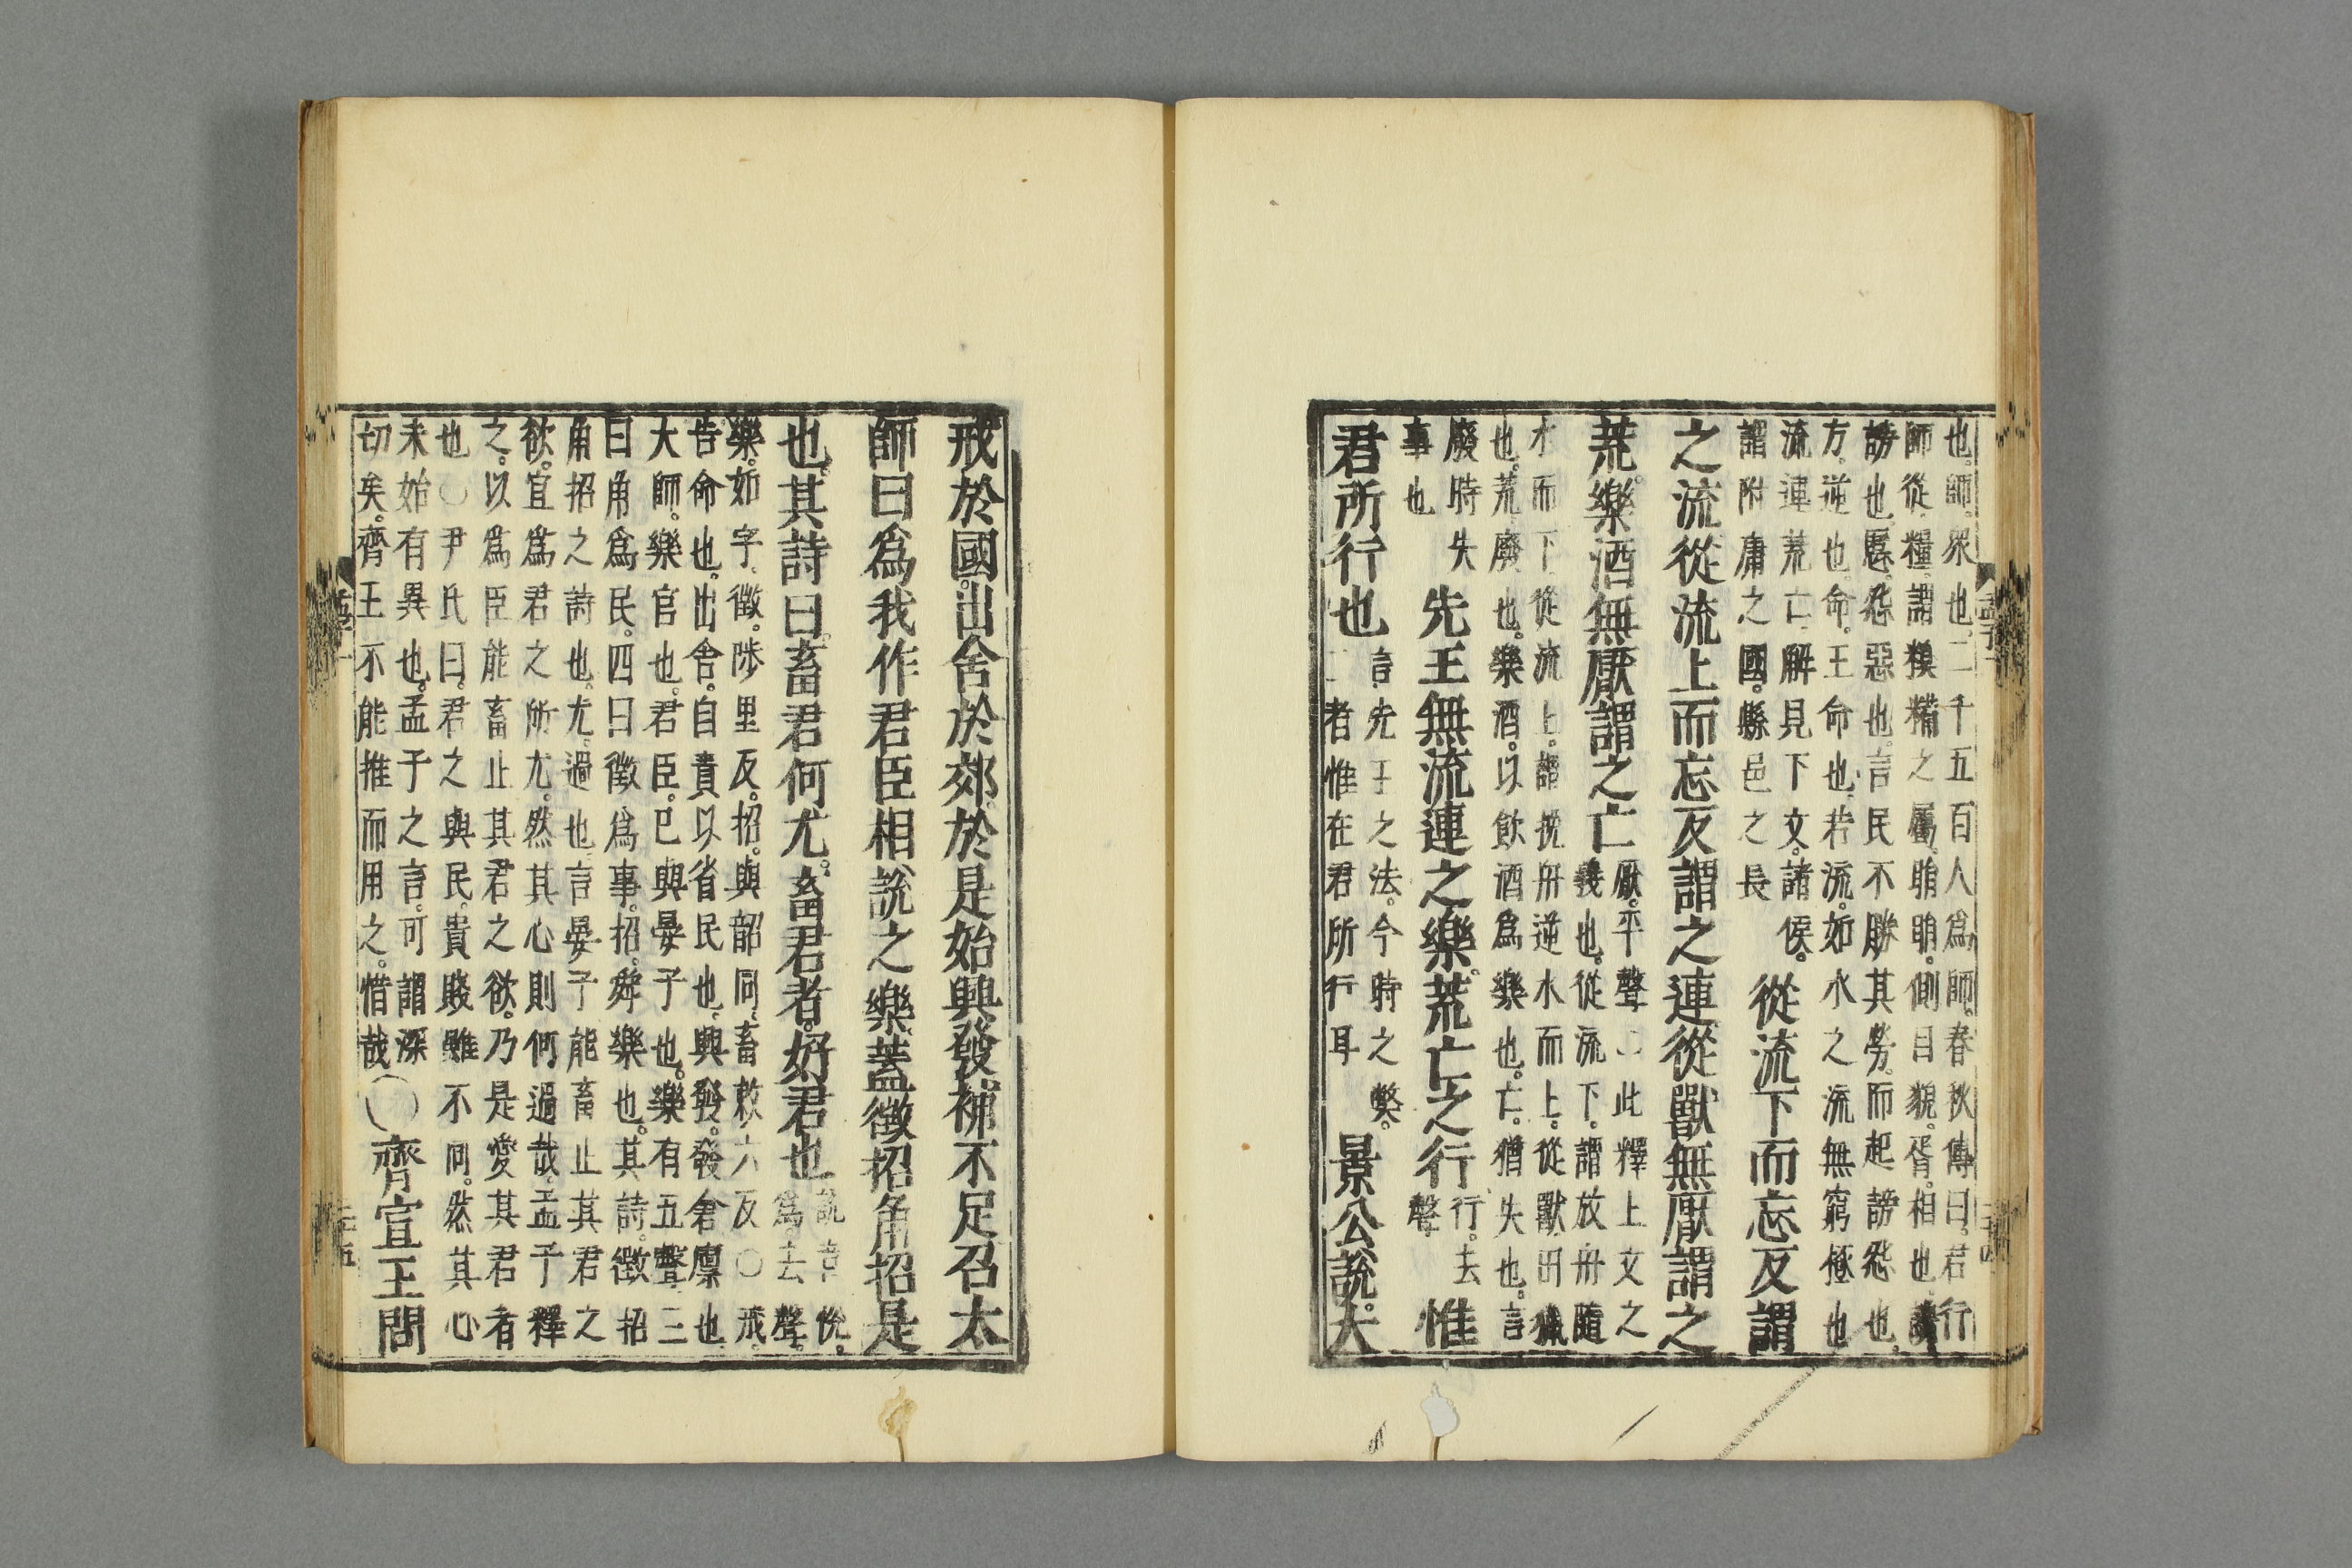 也。師。眾也。二千五百人爲師。春秋傳曰。君行
師從。糧。謂糗糒之屬。睊睊。側目貌。胥。相也。讒
謗也。慝。怨惡也。言民不勝其勞。而起謗怨也。
方。逆也。命。王命也。若流。如水之流無窮極也
流連荒亡。解見下文。諸侯。
謂附庸之國。縣邑之長
從流下而忘反謂
之流從流上而忘反謂之連從獸無厭謂之
荒。樂酒無厭謂之亡
厭。平聲○此釋上文之
義也。從流下。謂放舟隨
水而下。從流上。謂挽舟逆水而上。從獸。田獵
也。荒。廢也。樂酒。以飲酒爲樂也。亡。猶失也。言
廢時失
事也
先王無流連之樂。荒亡之行
行。去
聲
惟
君所行也
言先王之法。今時之弊。
二者惟在君所行耳
景公說。大
戒於國。出舍於郊。於是始興發補不足召太
師曰爲我作君臣相說之樂。蓋徵招角招是
也。其詩曰。畜君何尤。畜君者。好君也
說音悅。
爲去聲。
樂。如字。徵。陟里反。招。與韶同。畜敕六反○戒。
告命也。出舍。自責以省民也。興發。發倉廩也。
大師。樂官也。君臣。已與晏子也。樂有五聲。三
曰角爲民。四曰徵爲事。招。舜樂也。其詩。徵招
角招之詩也。尤。過也。言晏子能畜止其君之
欲。宜爲君之所尤。然其心則何過哉。孟子釋
之。以爲臣能畜止其君之欲。乃是愛其君者
也○尹氏曰。君之與民。貴賤雖不同。然其心
未始有異也。孟子之言。可謂深
切矣。齊王不能推而用之。惜哉
○齊宣王問